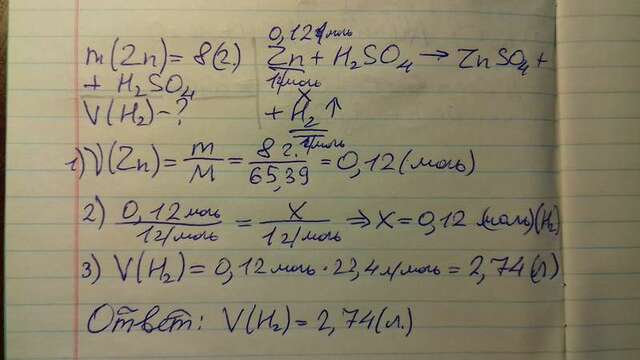 m(Zn) = 8(г.)
+ H₂SO₄
V(H₂) - ?
0,12 моль
Zn + H₂SO₄ → ZnSO₄ +
1 моль
x
+ H₂ ↑
1) ν(Zn) = m/M = 8 г. / 65,39 г/моль = 0,12 (моль)
2) 0,12 моль / 1 г/моль = x / 1 г/моль ⇒ x = 0,12 (моль)(H₂)
3) V(H₂) = 0,12 моль · 22,4 л/моль = 2,74 (л)
Ответ: V(H₂) = 2,74 (л.)